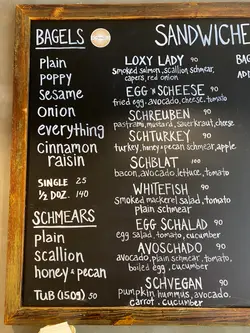 BAGELS
Plain
poppy
sesame
onion
everything
cinnamon
raisin
SINGLE 25
½ DOZ. 140
SCHMEARS
plain
scallion
honey & pecan
TUB (150g) 50
SANDWICHE
LOXY LADY 90
Smoked salmon, scallion schmear,
capers, red onion
EGG 'N SCHEESE 90
fried egg, avocado, cheese, tomato
SCHREUBEN 90
pastrami, mustard, sauerkraut, cheese
SCHTURKEY 90
turkey, honey + pecan schmear, apple
SCHBLAT 90
bacon, avocado, lettuce, tomato
WHITEFISH 90
smoked mackerel salad, tomato
plain schmear
EGG SCHALAD 90
egg salad, tomato, cucumber
AVOSCHADO 90
avocado, plain schmear, tomato,
boiled egg, cucumber
SCHVEGAN 90
pumpkin hummus, avocado,
carrot, cucumber